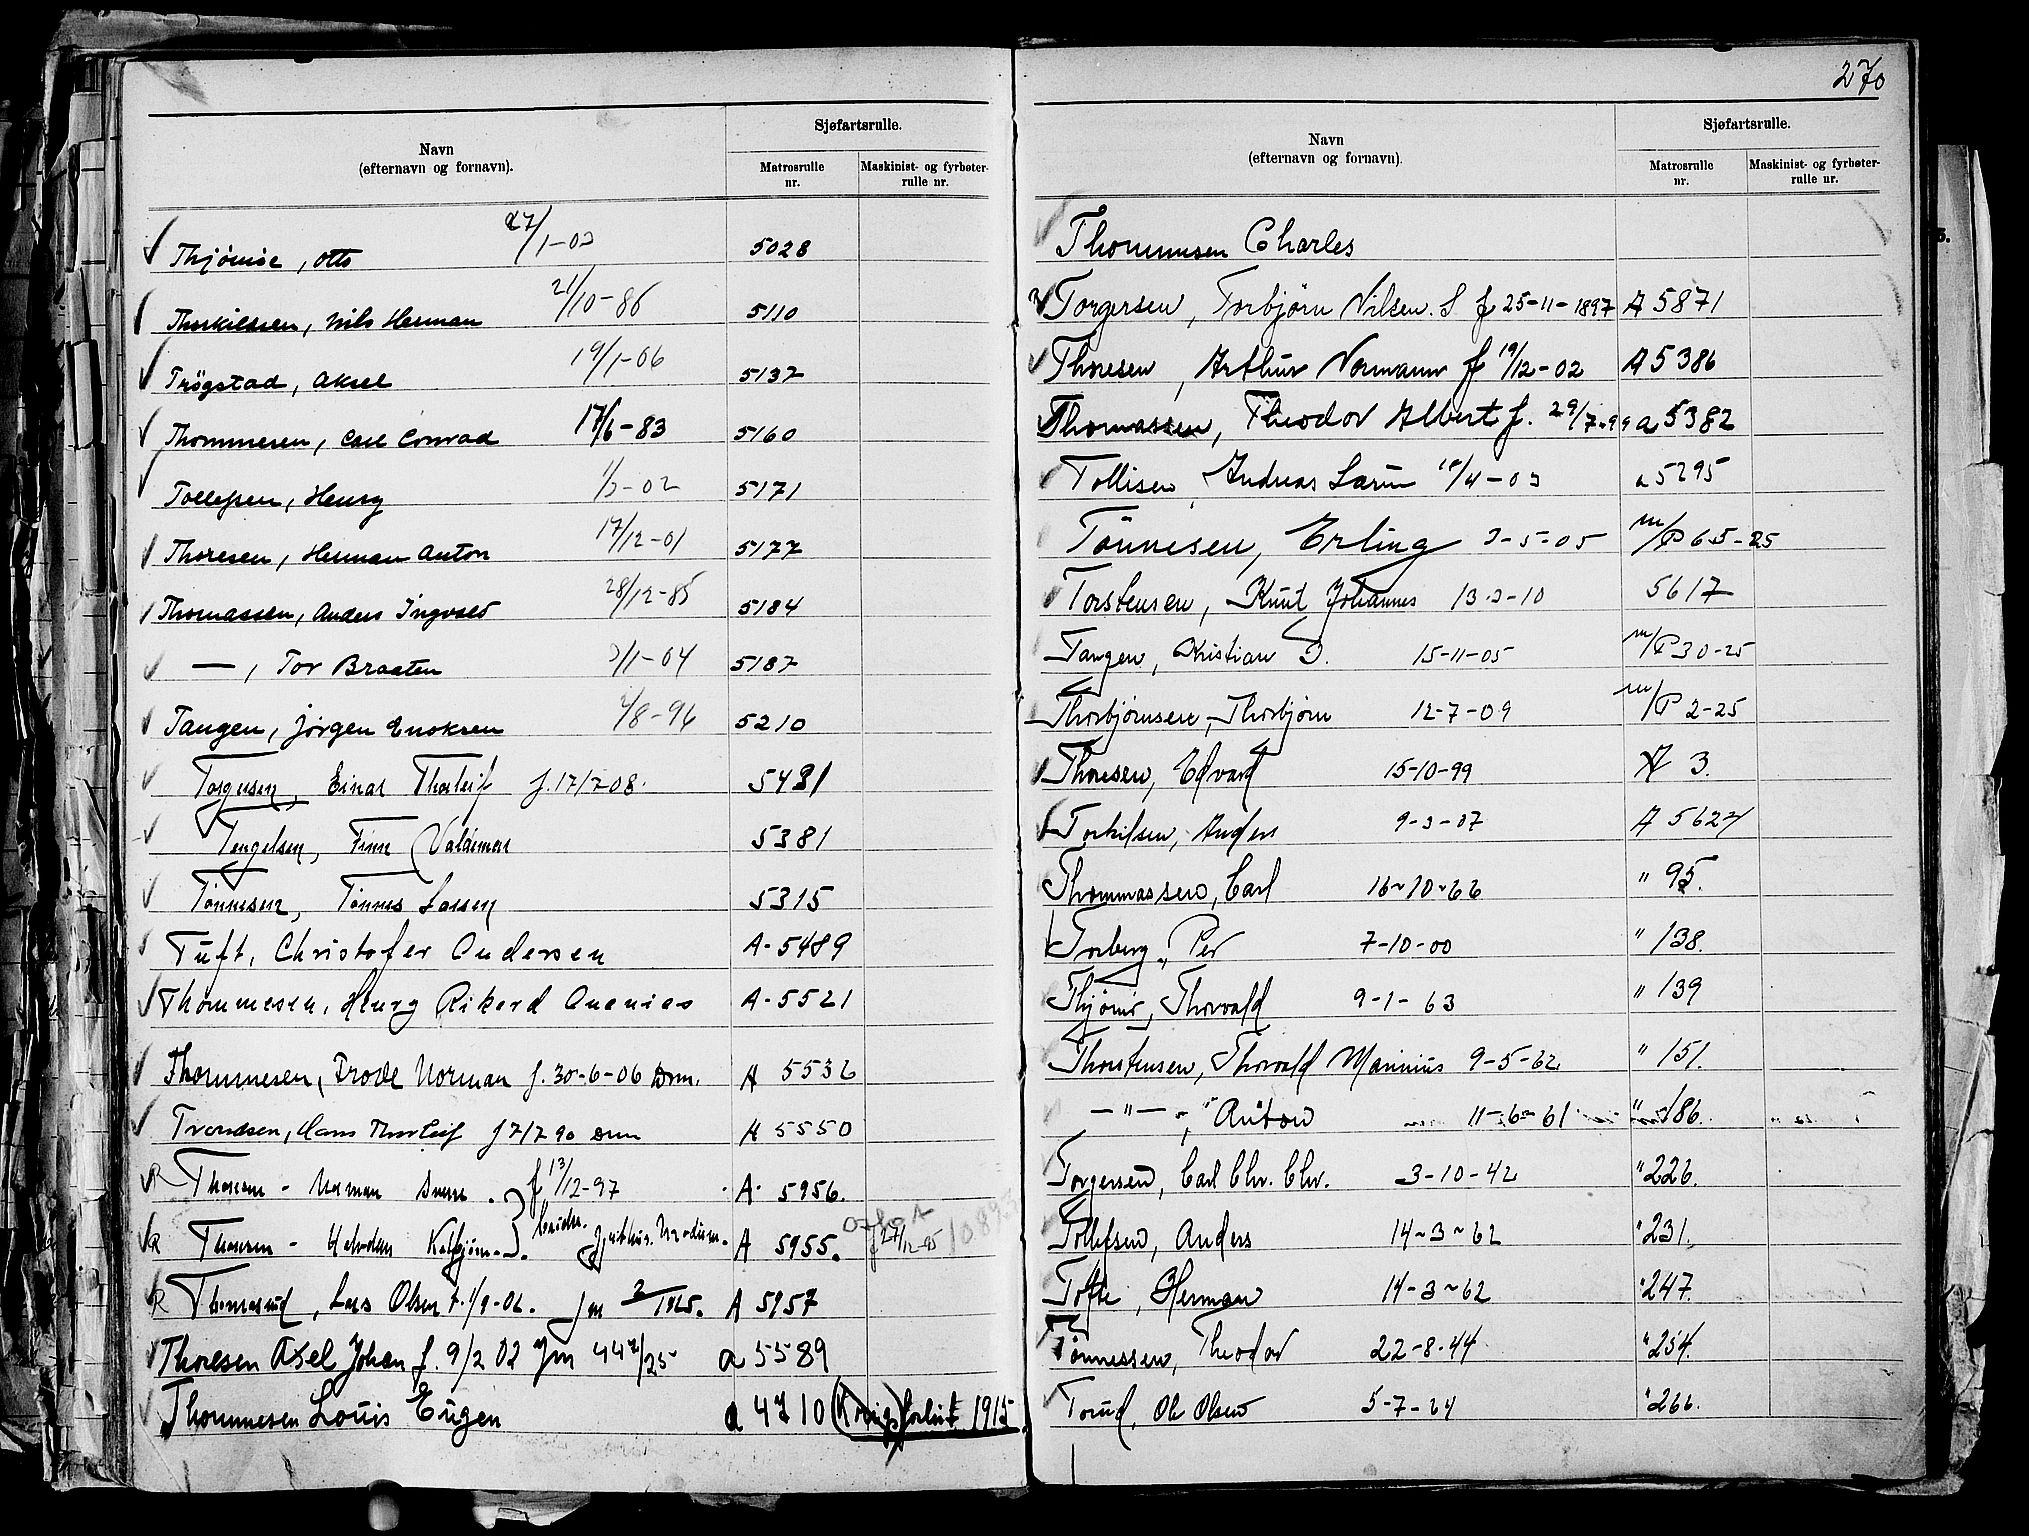 Navn
(efternavn og fornavn).
Sjøfartsrulle.
Matrosrulle
nr.
Maskinist- og fyrbøter-
rulle nr.
Thjömöe, Otto 27/1-03 5028
Thorkilsen, Nils Herman 21/10-86 5110
Trögstad, Aksel 19/1-06 5137
Thommesen, Carl Conrad 17/6-83 5160
Tollefsen, Henry 02 5171
Thoresen, Herman Anton 17/12-01 5177
Thomassen, Anders Ingvald 28/12-85 5184
— , Tor Braaten 3/1-04 5187
Tangen, Jörgen Enoksen 8-96 5210
Torgersen, Einar Thorleif f. 17/7 08. 5431
Tengelsen, Finn Valdemar 5381
Tönnesen, Tönnes Larsen 5315
Tuft, Christofer Andersen A-5489
Thommesen, Henry Rikard Ananias A-5521
Thommesen, Frode Norman f. 30-6-06 Drm. A 5532
Trondsen, Hans Thorleif f 7/7 90 Drm A 5550
R Thoresen - Herman f 13/12-97 A. 5956.
R Thoresen - Halvdan A 5955. f 27/12-95
R Thomasrud, Lars Olsen f. 1/9-02. Jm 2/1925. A 5957
Thoresen Axel Johan f. 9/2 02 Jm 44 2/25 a 5589
Thommesen Louis Eugen a 4710 (Krigs)forlist 1915
270
Navn
(efternavn og fornavn).
Sjøfartsrulle.
Matrosrulle
nr.
Maskinist- og fyrbøter-
rulle nr.
Thommesen Charles
Torgersen, Torbjörn Nilsen. S f 25-11-1897 A 5871
Thoresen, Arthur Normann f 19/12-02 A 5386
Thomassen, Theodor Albert f. 29/7-99 a 5382
Tollisen, Andreas 4-03 a 5295
Tönnesen, Erling 3-5-05 m/P 65-25
Torstensen, Knut Johannes 13-3-10 5617
Tangen, Kristian D. 15-11-05 m/P 30-25
Thorbjørnsen, Thorbjørn 12-7-09 m/P 2-25
Thoresen, Edvard 15-10-99 A 3.
Torkilsen, Anders 9-3-07 A 5627
Thommassen, Carl 16-10-62 " 95.
Torberg, Per 7-10-00 " 138.
Thjömö, Thorvald 9-1-63 " 139
Thorstensen, Thorvald Marinius 9-5-62 " 151.
— " — , Anton 11-6-61 " 186.
Torgersen, Carl Chr. Chr. 3-10-42 " 226.
Tollefsen, Anders 14-3-62 " 231.
Tofte, Herman 14-3-62 " 247.
Tönnessen, Theodor 22-8-44 " 254.
Torud, Ole Olsen 5-7-64 " 266.